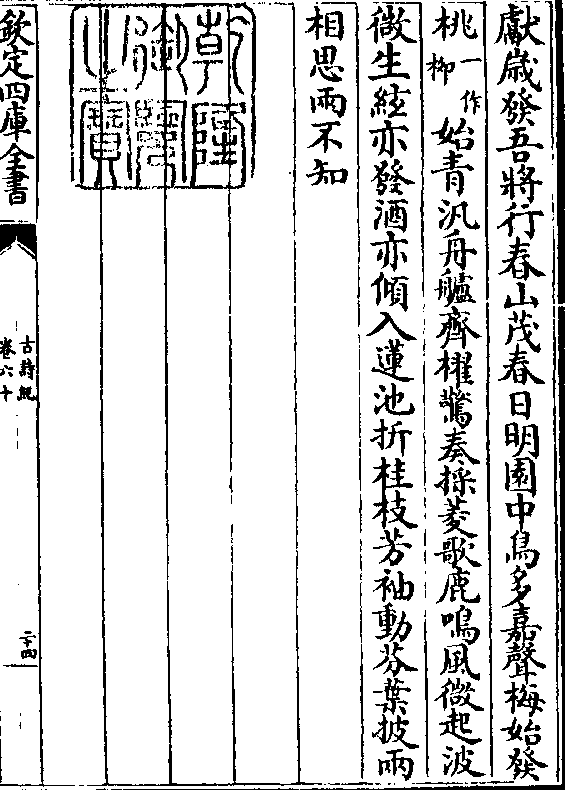 獻歲發吾將行春山茂春日明園中鳥多嘉聲梅始發
桃一作柳始青汎舟艫齊櫂驚奏採菱歌鹿鳴風微起波
微生絃亦發酒亦傾入蓮池折桂枝芳袖動芬葉披兩
相思兩不知
乾隆御覽之寶
欽定四庫全書
古詩紀
卷六十
二十四